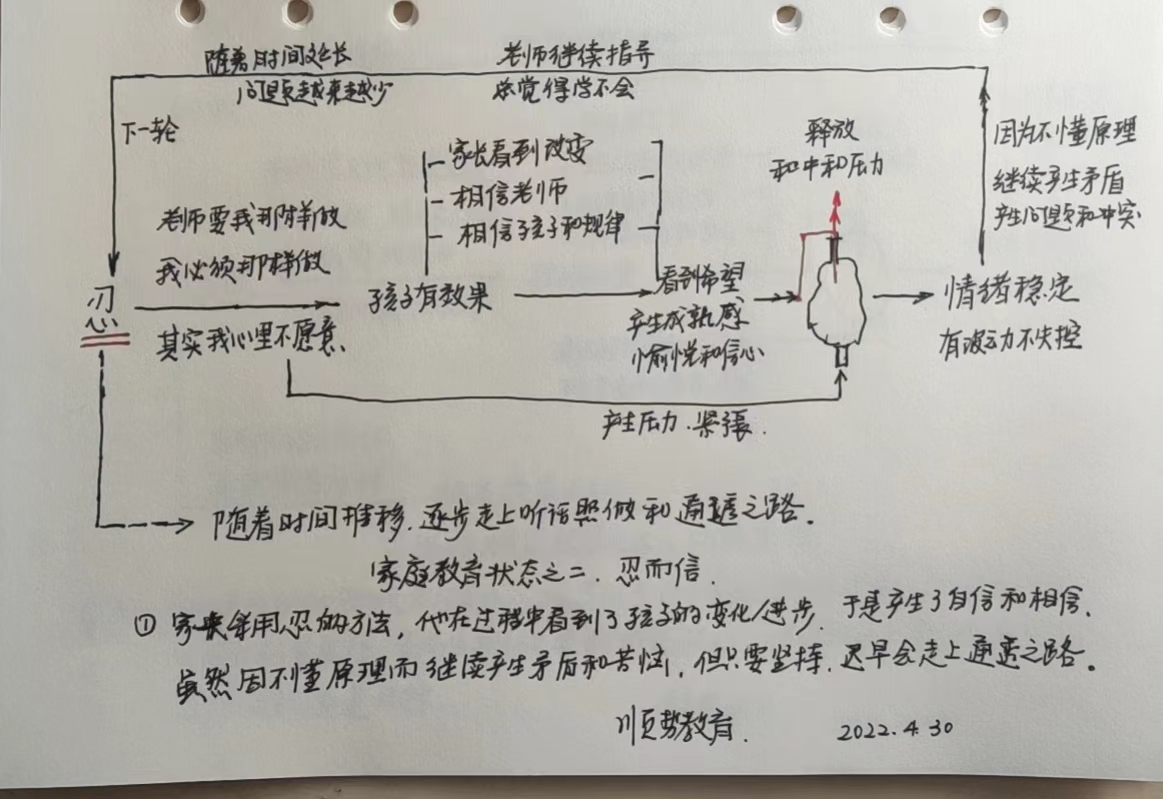 随着时间延长
问题越来越少
老师继续指导
总觉得学不会
下一轮
老师要我那样做
我必须那样做
忍
其实我心里不愿意
孩子有效果
家长看到改变
相信老师
相信孩子和规律
看到希望
产生成就感
愉悦和信心
释放
和中和压力
产生压力、紧张.
情绪稳定
有波动不失控
因为不懂原理
继续产生矛盾
产生问题和冲突
随着时间推移.逐步走上听话照做和通透之路.
家庭教育状态之二.忍而信.
① 家长采用忍的方法,他在过程中看到了孩子的变化/进步.于是产生了自信和相信.
虽然因不懂原理而继续产生矛盾和苦恼,但只要坚持.迟早会走上通透之路。
顺势教育.
2022.4.30